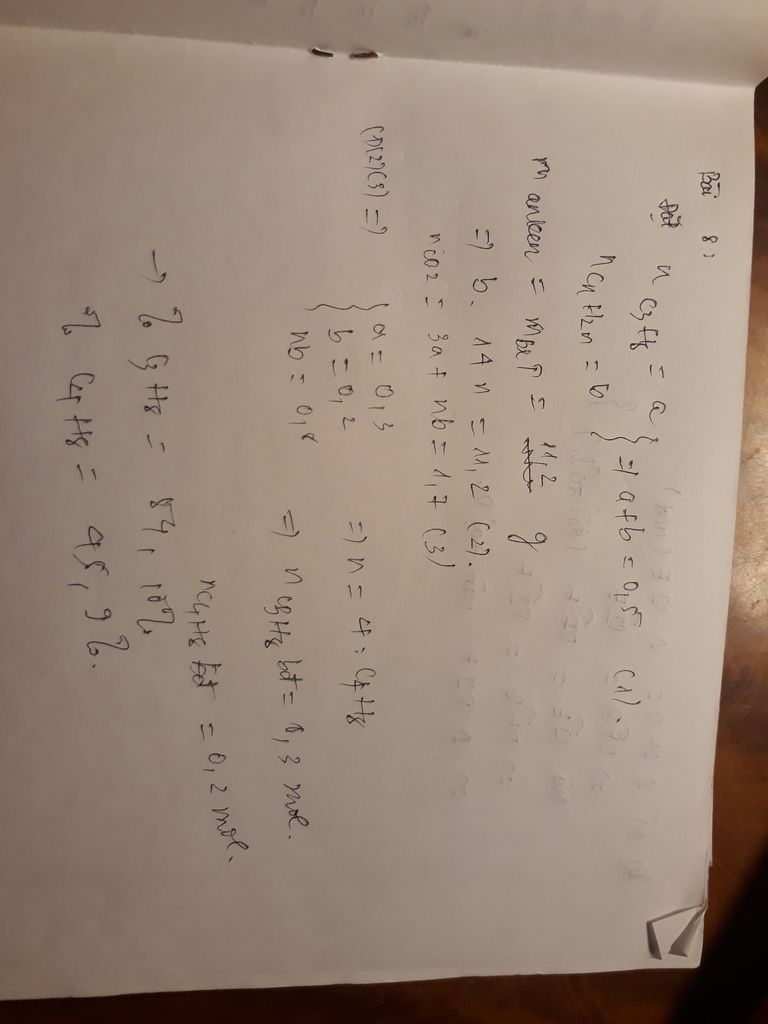 Bài 8:
Đặt n C3H8 = a
n CnH2n = b } => a+b = 0,5 (1).
m anken = m bđT = 11,2 g
=> b. 14 n = 11,2 (2).
n CO2 = 3a + nb = 1,7 (3)
(1)(2)(3) => { a = 0,3
b = 0,2 => n = 4 : C4H8
nb = 0,8 => n C3H8 bđ = 0,3 mol.
n C4H8 = 0,2 mol.
→ % C3H8 = 54,10%
% C4H8 = 45,9%.